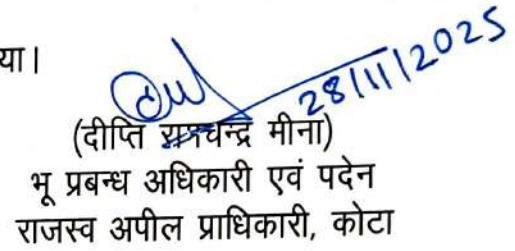 या।
28/11/2025
(दीप्ति रामचन्द्र मीना)
भू प्रबन्ध अधिकारी एवं पदेन
राजस्व अपील प्राधिकारी, कोटा